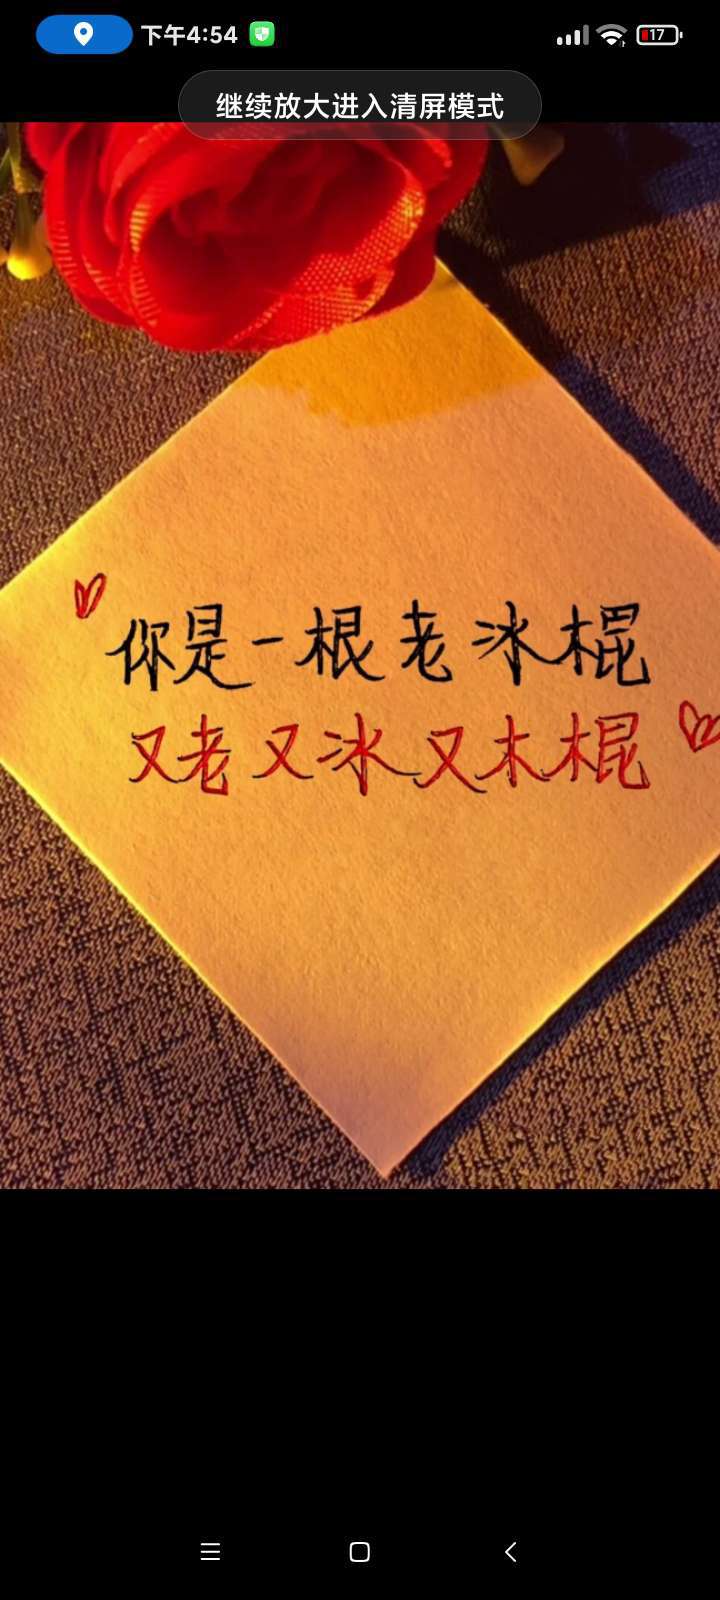 下午4:54
17
继续放大进入清屏模式
你是一根老冰棍
又老又冰又木棍